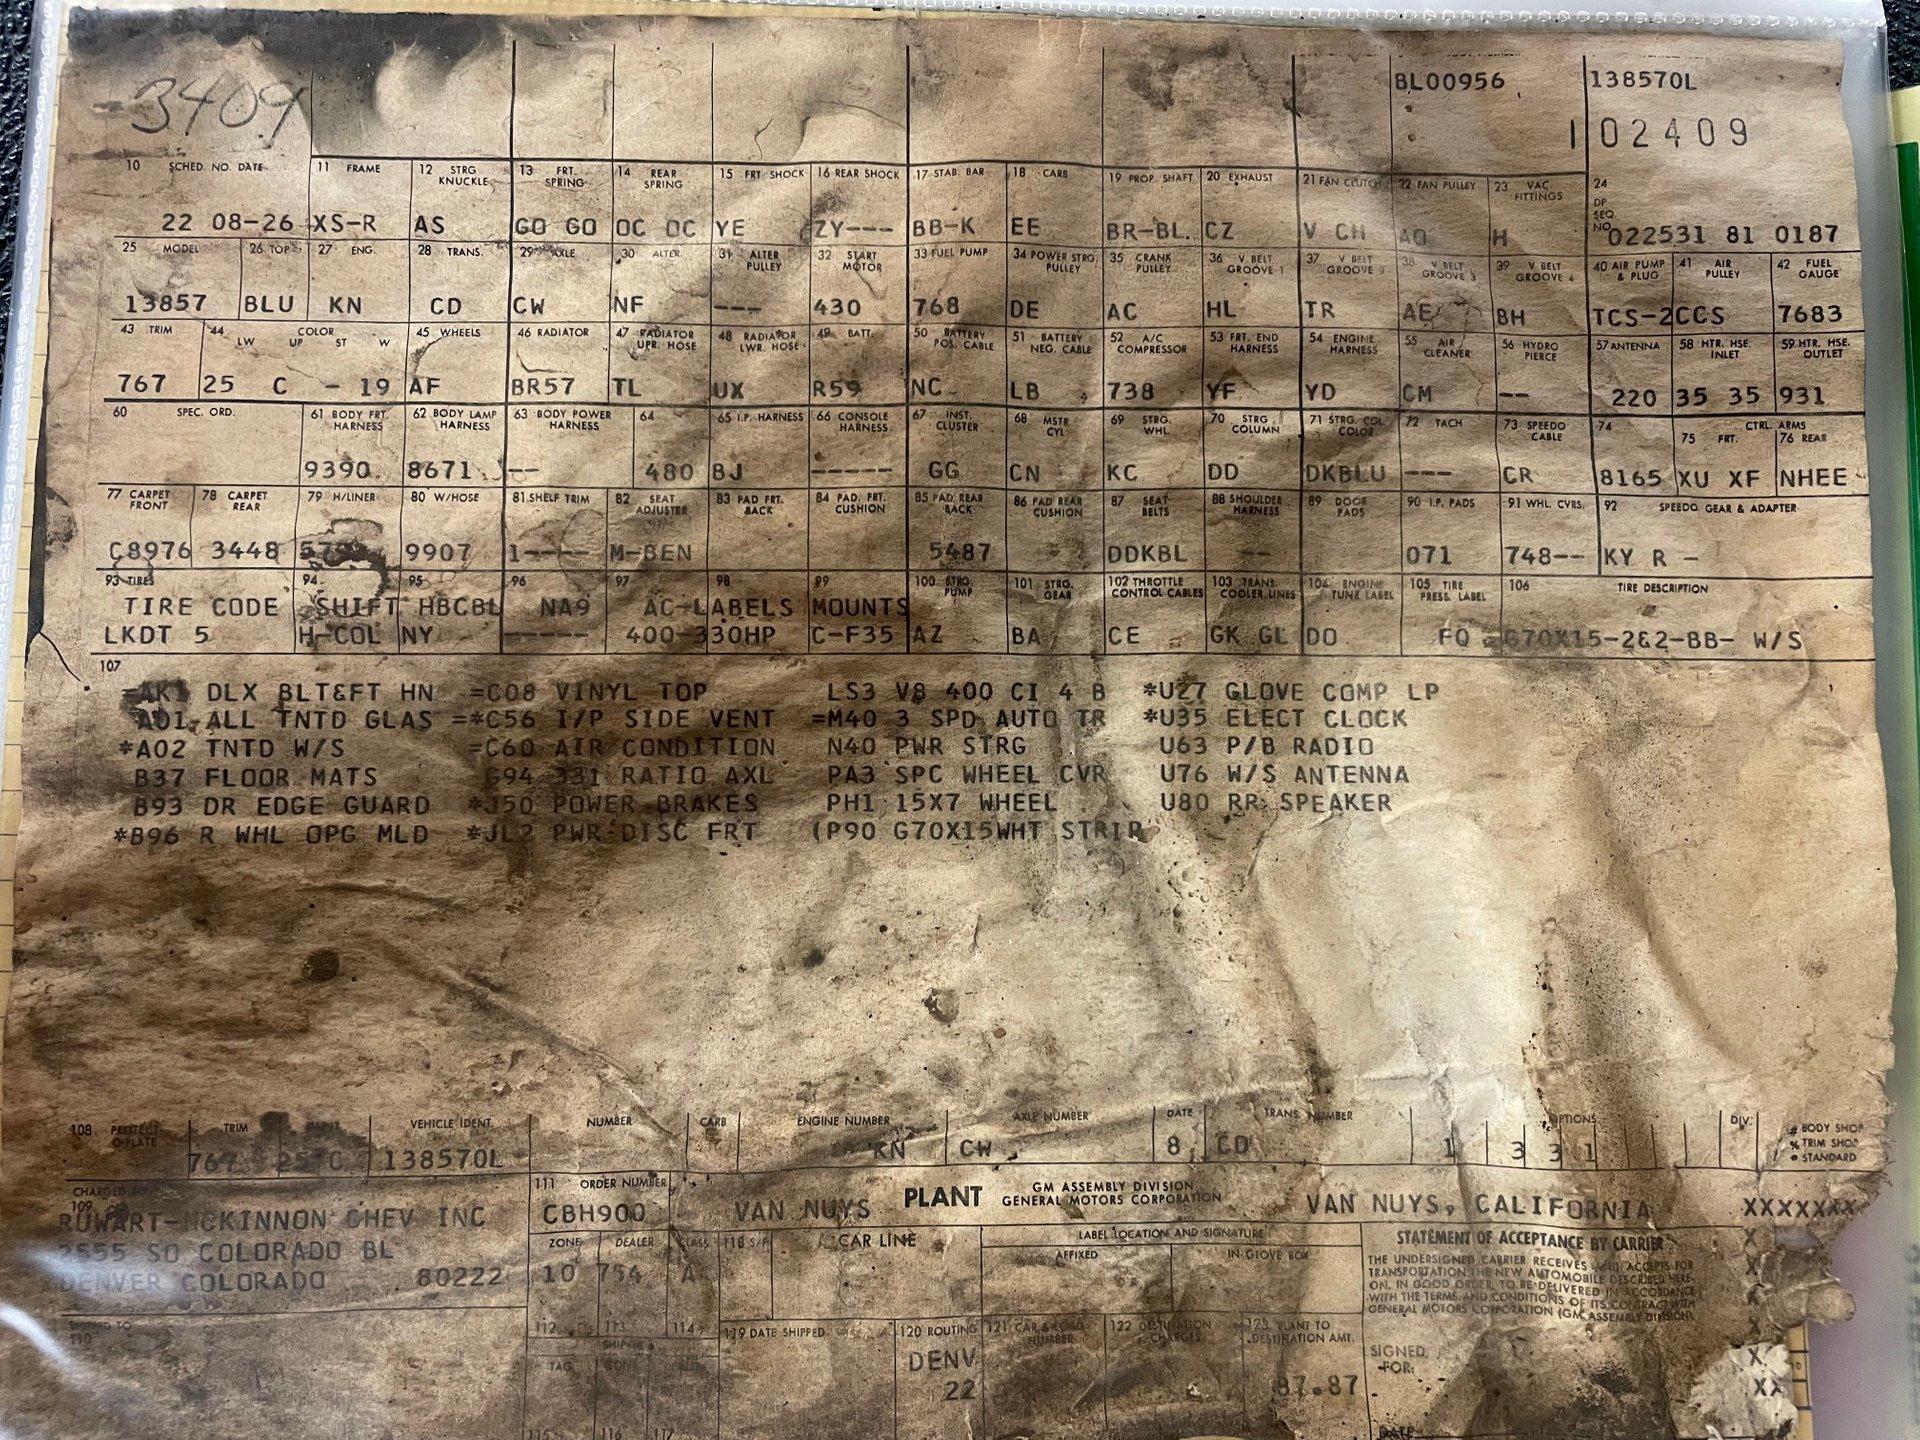 3409
BL00956 138570L
102409
10 SCHED. NO. DATE 11 FRAME 12 STRG KNUCKLE 13 FRT. SPRING 14 REAR SPRING 15 FRT SHOCK 16 REAR SHOCK 17 STAB. BAR 18 CARB 19 PROP. SHAFT 20 EXHAUST 21 FAN CLUTCH 22 FAN PULLEY 23 VAC. FITTINGS 24 DP SEQ. NO.
22 08-26 XS-R AS GO GO OC OC YE ZY--- BB-K EE BR-BL CZ V CH AO H 022531 81 0187
25 MODEL 26 TOP 27 ENG. 28 TRANS. 29 AXLE 30 ALTER. 31 ALTER PULLEY 32 START MOTOR 33 FUEL PUMP 34 POWER STRG. PULLEY 35 CRANK PULLEY 36 V BELT GROOVE 1 37 V BELT GROOVE 2 38 V BELT GROOVE 3 39 V BELT GROOVE 4 40 AIR PUMP & PLUG 41 AIR PULLEY 42 FUEL GAUGE
13857 BLU KN CD CW NF --- 430 768 DE AC HL TR AE BH TCS-2CCS 7683
43 TRIM 44 COLOR LW UP ST W 45 WHEELS 46 RADIATOR 47 RADIATOR UPR. HOSE 48 RADIATOR LWR. HOSE 49 BATT. 50 BATTERY POS. CABLE 51 BATTERY NEG. CABLE 52 A/C COMPRESSOR 53 FRT. END HARNESS 54 ENGINE HARNESS 55 AIR CLEANER 56 HYDRO PIERCE 57 ANTENNA 58 HTR. HSE. INLET 59 HTR. HSE. OUTLET
767 25 C - 19 AF BR57 TL UX R59 NC LB 738 YF YD CM -- 220 35 35 931
60 SPEC. ORD. 61 BODY FRT. HARNESS 62 BODY LAMP HARNESS 63 BODY POWER HARNESS 64 65 I.P. HARNESS 66 CONSOLE HARNESS 67 INST. CLUSTER 68 MSTR CYL 69 STRG. WHL. 70 STRG. COLUMN 71 STRG. COL. COLOR 72 TACH 73 SPEEDO CABLE 74 CTRL. ARMS 75 FRT. 76 REAR
9390 8671 -- 480 BJ ----- GG CN KC DD DKBLU --- CR 8165 XU XF NHEE
77 CARPET FRONT 78 CARPET REAR 79 H/LINER 80 W/HOSE 81 SHELF TRIM 82 SEAT ADJUSTER 83 PAD FRT. BACK 84 PAD. FRT. CUSHION 85 PAD. REAR BACK 86 PAD REAR CUSHION 87 SEAT BELTS 88 SHOULDER HARNESS 89 DOOR PADS 90 I.P. PADS 91 WHL. CVRS. 92 SPEEDO GEAR & ADAPTER
C8976 3448 9907 1---- M-BEN 5487 DDKBL -- 071 748-- KY R -
93 TIRES 94 95 96 97 98 99 100 STRG. PUMP 101 STRG. GEAR 102 THROTTLE CONTROL CABLES 103 TRANS. COOLER LINES 104 ENGINE TUNE LABEL 105 TIRE PRESS. LABEL 106 TIRE DESCRIPTION
TIRE CODE SHIFT HBCBL NA9 AC-LABELS MOUNTS
LKDT 5 H-COL NY ----- 400-330HP C-F35 AZ BA CE GK GL DO FQ G70X15-2&2-BB- W/S
107
=AK1 DLX BLT&FT HN =C08 VINYL TOP LS3 V8 400 CI 4 B *U27 GLOVE COMP LP
A01 ALL TNTD GLAS =*C56 I/P SIDE VENT =M40 3 SPD AUTO TR *U35 ELECT CLOCK
*A02 TNTD W/S =C60 AIR CONDITION N40 PWR STRG U63 P/B RADIO
B37 FLOOR MATS G94 331 RATIO AXL PA3 SPC WHEEL CVR U76 W/S ANTENNA
B93 DR EDGE GUARD *J50 POWER BRAKES PH1 15X7 WHEEL U80 RR SPEAKER
*B96 R WHL OPG MLD *JL2 PWR DISC FRT (P90 G70X15WHT STRIP
108 PROTECT-O-PLATE TRIM VEHICLE IDENT. NUMBER CARB ENGINE NUMBER AXLE NUMBER DATE TRANS. NUMBER OPTIONS DIV. # BODY SHOP
% TRIM SHOP
• STANDARD
767 25 C 138570L KN CW 8 CD 1 3 3 1
CHARGED TO 109 111 ORDER NUMBER
RUWART-MCKINNON CHEV INC CBH900 VAN NUYS PLANT GM ASSEMBLY DIVISION GENERAL MOTORS CORPORATION VAN NUYS, CALIFORNIA XXXXXXX
2555 SO COLORADO BL ZONE DEALER CLASS 118 S/F CAR LINE LABEL LOCATION AND SIGNATURE STATEMENT OF ACCEPTANCE BY CARRIER X
DENVER COLORADO 80222 10 754 A AFFIXED IN GLOVE BOX
THE UNDERSIGNED CARRIER RECEIVES AND ACCEPTS FOR
TRANSPORTATION THE NEW AUTOMOBILE DESCRIBED HERE-
ON, IN GOOD ORDER, TO BE DELIVERED IN ACCORDANCE
WITH THE TERMS AND CONDITIONS OF ITS CONTRACT WITH
GENERAL MOTORS CORPORATION (GM ASSEMBLY DIVISION).
SHIPPED TO 110 112 113 114 119 DATE SHIPPED 120 ROUTING 121 CAR & LOAD NUMBER 122 DESTINATION CHARGES 123 PLANT TO DESTINATION AMT.
TAG DENV SIGNED FOR: X
22 87.87 XX
115 116 117 DATE